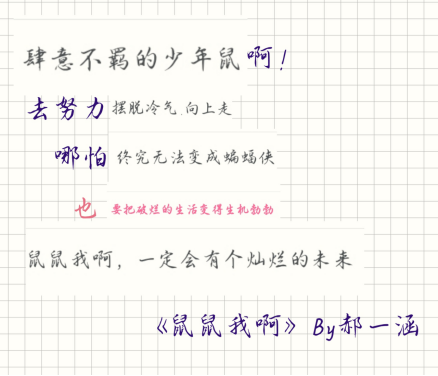 肆意不羁的少年鼠啊！
去努力 摆脱冷气 向上走
哪怕 终究无法变成蝙蝠侠
也 要把破烂的生活变得生机勃勃
鼠鼠我啊，一定会有个灿烂的未来
《鼠鼠我啊》By郝一涵